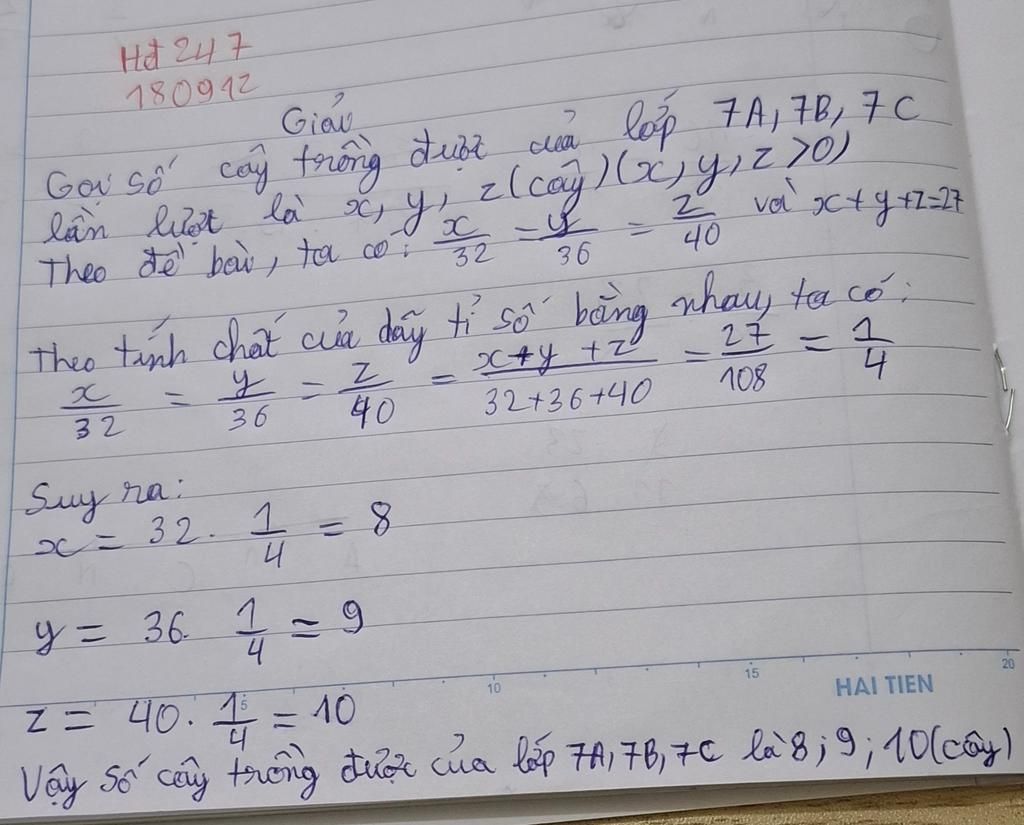 Hđ 247
180912
Giải
Gọi số cây trồng được của lớp 7A, 7B, 7C
lần lượt là x, y, z (cây) (x, y, z > 0)
Theo đề bài, ta có: x/32 = y/36 = z/40 và x+y+z=27
Theo tính chất của dãy tỉ số bằng nhau, ta có:
x/32 = y/36 = z/40 = x+y+z/32+36+40 = 27/108 = 1/4
Suy ra:
x = 32. 1/4 = 8
y = 36. 1/4 = 9
10 15 20
HAI TIEN
z = 40. 1/4 = 10
5
Vậy số cây trồng được của lớp 7A, 7B, 7C là 8; 9; 10 (cây)